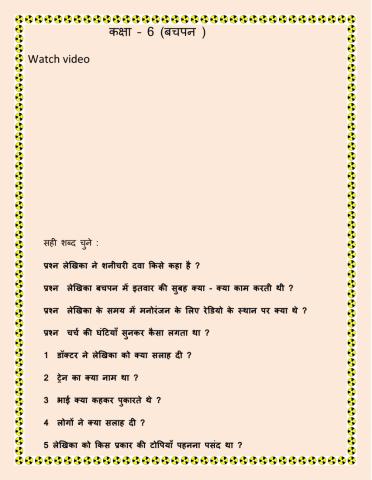 कक्षा - 6 (बचपन )
Watch video
सही शब्द चुने :
प्रश्न लेखिका ने शनीचरी दवा किसे कहा है ?
प्रश्न लेखिका बचपन में इतवार की सुबह क्या - क्या काम करती थी ?
प्रश्न लेखिका के समय में मनोरंजन के लिए रेडियो के स्थान पर क्या थे ?
प्रश्न चर्च की घंटियाँ सुनकर कैसा लगता था ?
1 डॉक्टर ने लेखिका को क्या सलाह दी ?
2 ट्रेन का क्या नाम था ?
3 भाई क्या कहकर पुकारते थे ?
4 लोगों ने क्या सलाह दी ?
5 लेखिका को किस प्रकार की टोपियाँ पहनना पसंद था ?